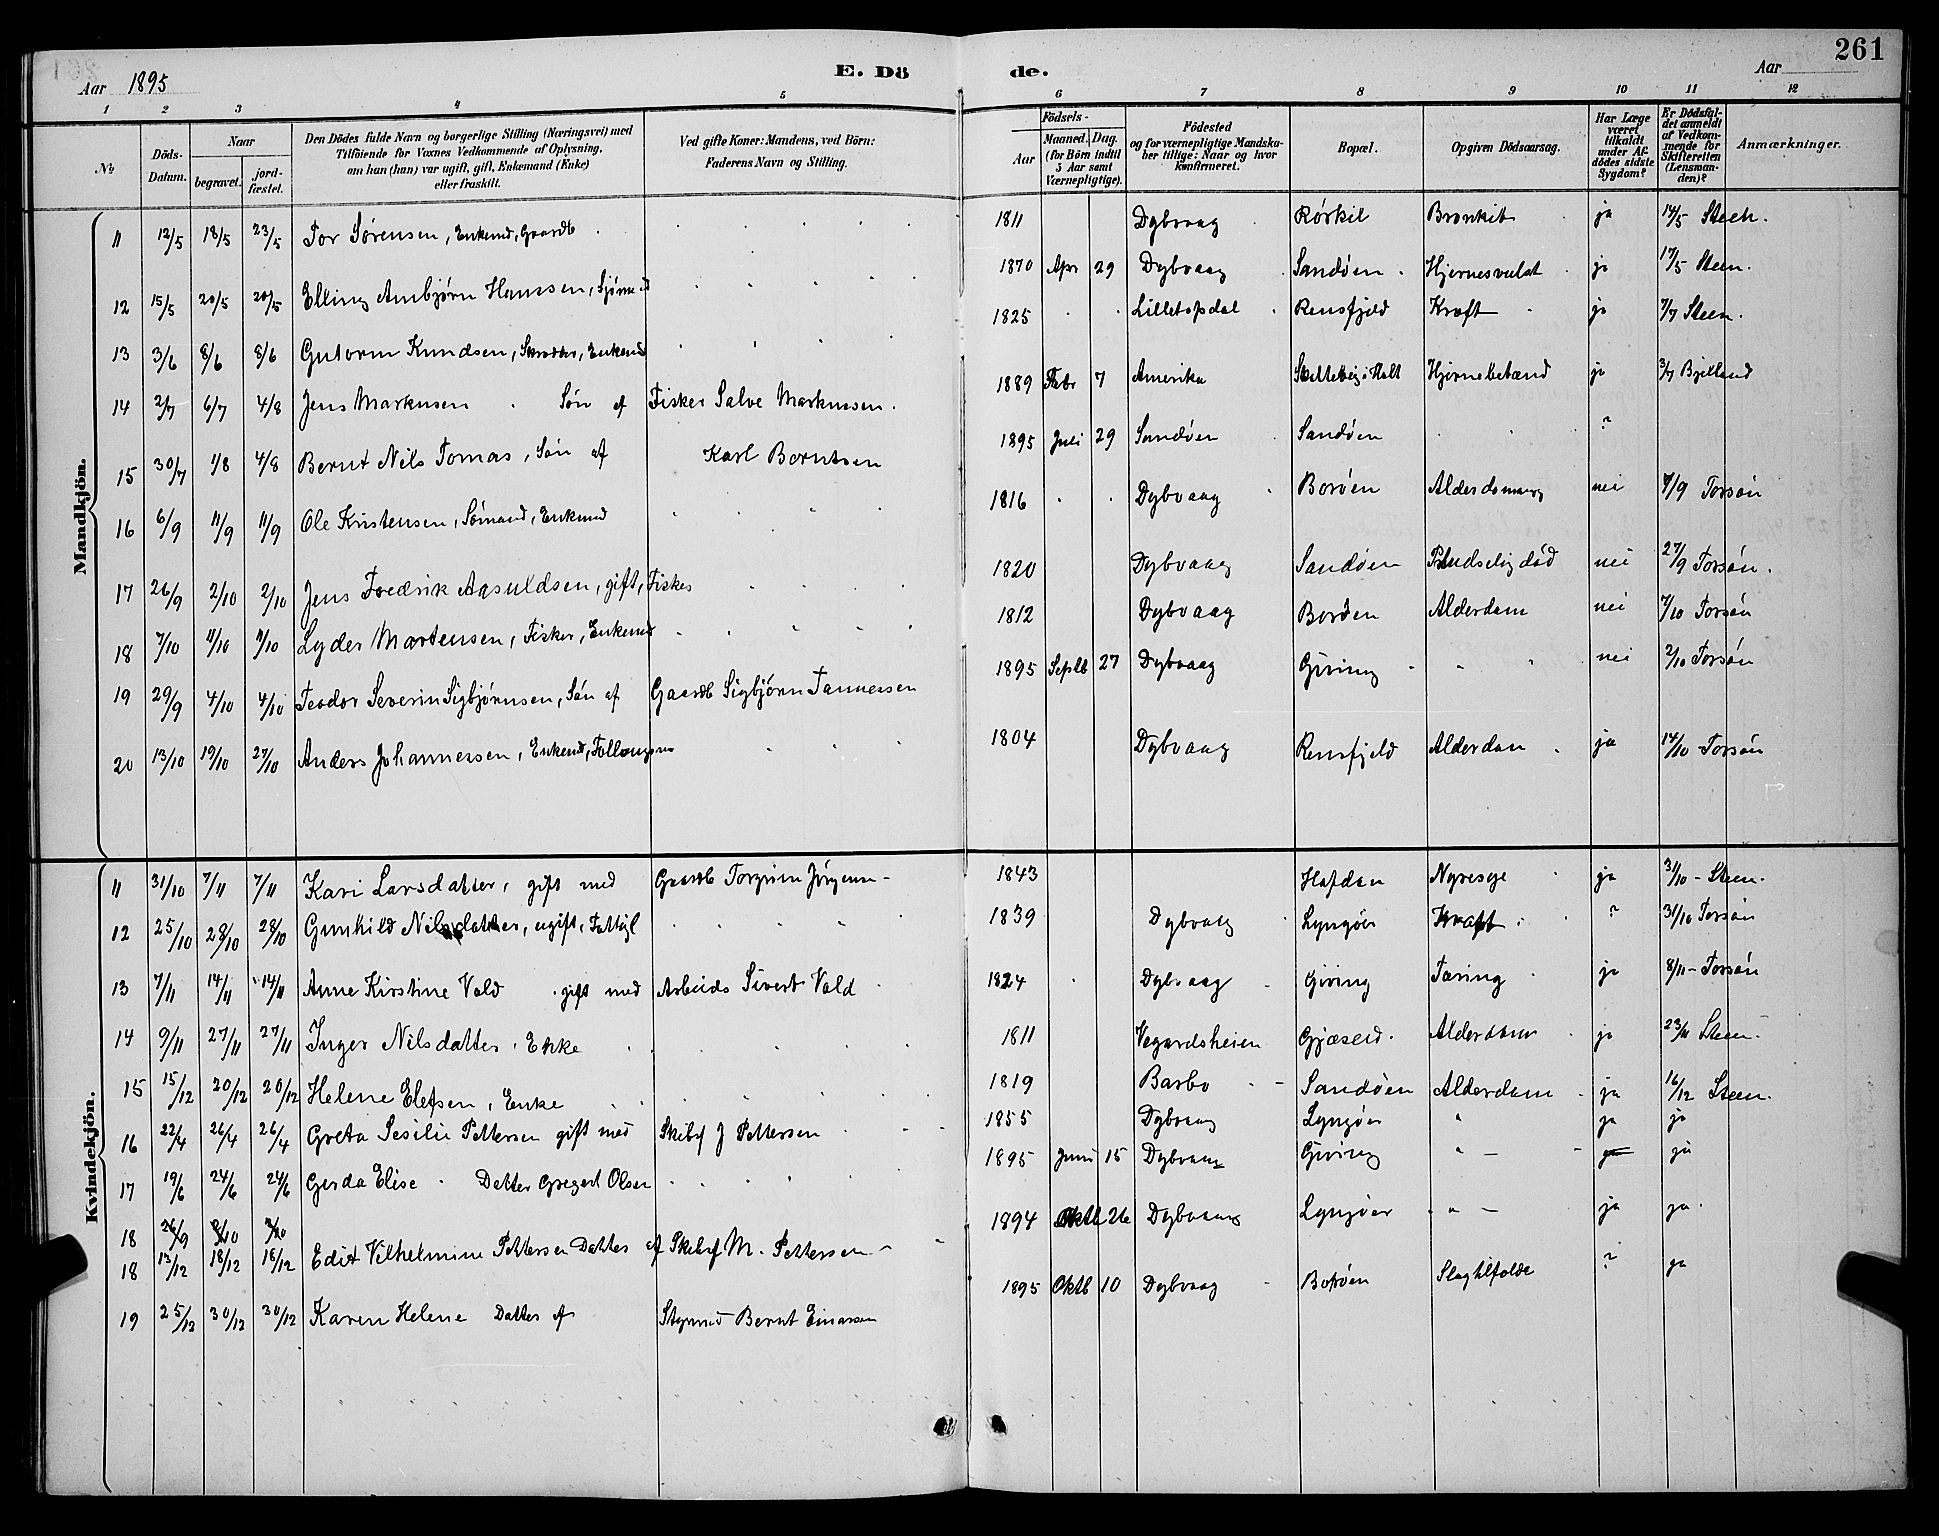 261
Aar 1895
E. Dö
de.
Aar
1 2 3 4 5 6 7 8 9 10 11 12
Nr.
Döds-Datum.
Naar
begravet.
jord-fæstet.
Den Dödes fulde Navn og borgerlige Stilling (Næringsvei) med
Tilföiende for Voxnes Vedkommende af Oplysning,
om han (hun) var ugift, gift, Enkemand (Enke)
eller fraskilt.
Ved gifte Koner: Mandens, ved Börn:
Faderens Navn og Stilling.
Födsels-
Aar
Maaned. Dag.
(for Börn indtil
5 Aar samt
Værnepligtige).
Födested
og for værnepligtige Mandska-
ber tillige: Naar og hvor
konfirmeret.
Bopæl.
Opgiven Dödsaarsag.
Har Læge
været
tilkaldt
under Af-
dödes sidste
Sygdom?
Er Dödsfal-
det anmeldt
af Vedkom-
mende for
Skifteretten
(Lensman-
den)?
Anmærkninger.
Mandkjön.
11 12/5 18/5 23/5 Tor Sørensen, Enkemd, Gaardb 1811 Dybvaag Rørkil Bronkit ja 14/5 Steen.
12 15/5 20/5 20/5 Elling Ambjørn Hanssen, Sjømand 1870 Apr 29 Dybvaag Sandøen Hjernesvulst ja 17/5 Steen.
13 3/6 8/6 8/6 Gutorm Knudsen, Skrædder, Enkemd 1825 Lilletopdal Rensfjeld Kræft ja 7/7 Steen.
14 2/7 6/7 4/8 Jens Markusen Søn af Fisker Salve Markussen. 1889 Febr 7 Amerika i Holt Hjernebetænd ja 3/7 Bjelland
15 30/7 1/8 4/8 Bernt Nils Tomas, Søn af Karl Berntsen 1895 Juli 29 Sandøen Sandøen ?
16 6/9 11/9 11/9 Ole Kristensen, Sømand, Enkemd 1816 Dybvaag Borøen Alderdom nei 7/9 Torsøn
17 26/9 2/10 2/10 Jens Fredrik Aasuldsen, gift, Fisker 1820 Dybvaag Sandøen Pludselig død nei 27/9 Torsøn.
18 7/10 11/10 11/10 Lyder Mortensen, Fisker, Enkemd 1812 Dybvaag Borøen Alderdom nei 7/10 Torsøn
19 29/9 4/10 4/10 Teodor Severin Sigbjørnsen, Søn af Gaardb Sigbjørn Tannessen 1895 Septb 27 Dybvaag Giving nei 2/10 Torsøn
20 13/10 19/10 27/10 Anders Johannessen, Enkemd, 1804 Dybvaag Rensfjeld Alderdom ja 14/10 Torsøn
Kvindekjön.
11 31/10 7/11 7/11 Kari Larsdatter, gift med Gaardb Torgrim Jörgensen 1843 Nyresyge ja 31/10 - Steen.
12 25/10 28/10 28/10 Gunhild Nilsdatter, ugift, Fattigl 1839 Dybvaag Lyngøer Kræft ? 31/10 Torsøn
13 7/11 14/11 14/11 Anne Kirstine Vold gift med Arbeids Sivert Vold 1824 Dybvaag Giving Tæring ja 8/11 - Torsøn
14 9/11 27/11 27/11 Inger Nilsdatter, Enke 1811 Vegardsheien Gjæserd. Alderdom ja 23/11 Steen.
15 15/12 20/12 20/12 Helene Elefsen, Enke 1819 Barbo Sandøen Alderdom ja 16/12 Steen.
16 22/4 26/4 26/4 Greta Sesilie Pettersen gift med Skibsf J Pettersen 1855 Dybvaag Lyngøer " ja ja
17 19/6 24/6 24/6 Gerda Elise Datter Gregert Olsen 1895 Juni 15 Dybvaag Giving " ja ja
18 26/9 8/10 8/10
18 13/12 18/12 18/12 Edit Vilhelmine Pettersen Datter af Skibsf M. Pettersen 1894 Oktb 26 Dybvaag Lyngøer " ja ja.
19 25/12 30/12 30/12 Karen Helene Datter af Styrmd Bernt Einarsen 1895 Oktb 10 Dybvaag Borøen Slagtilfælde ? ja